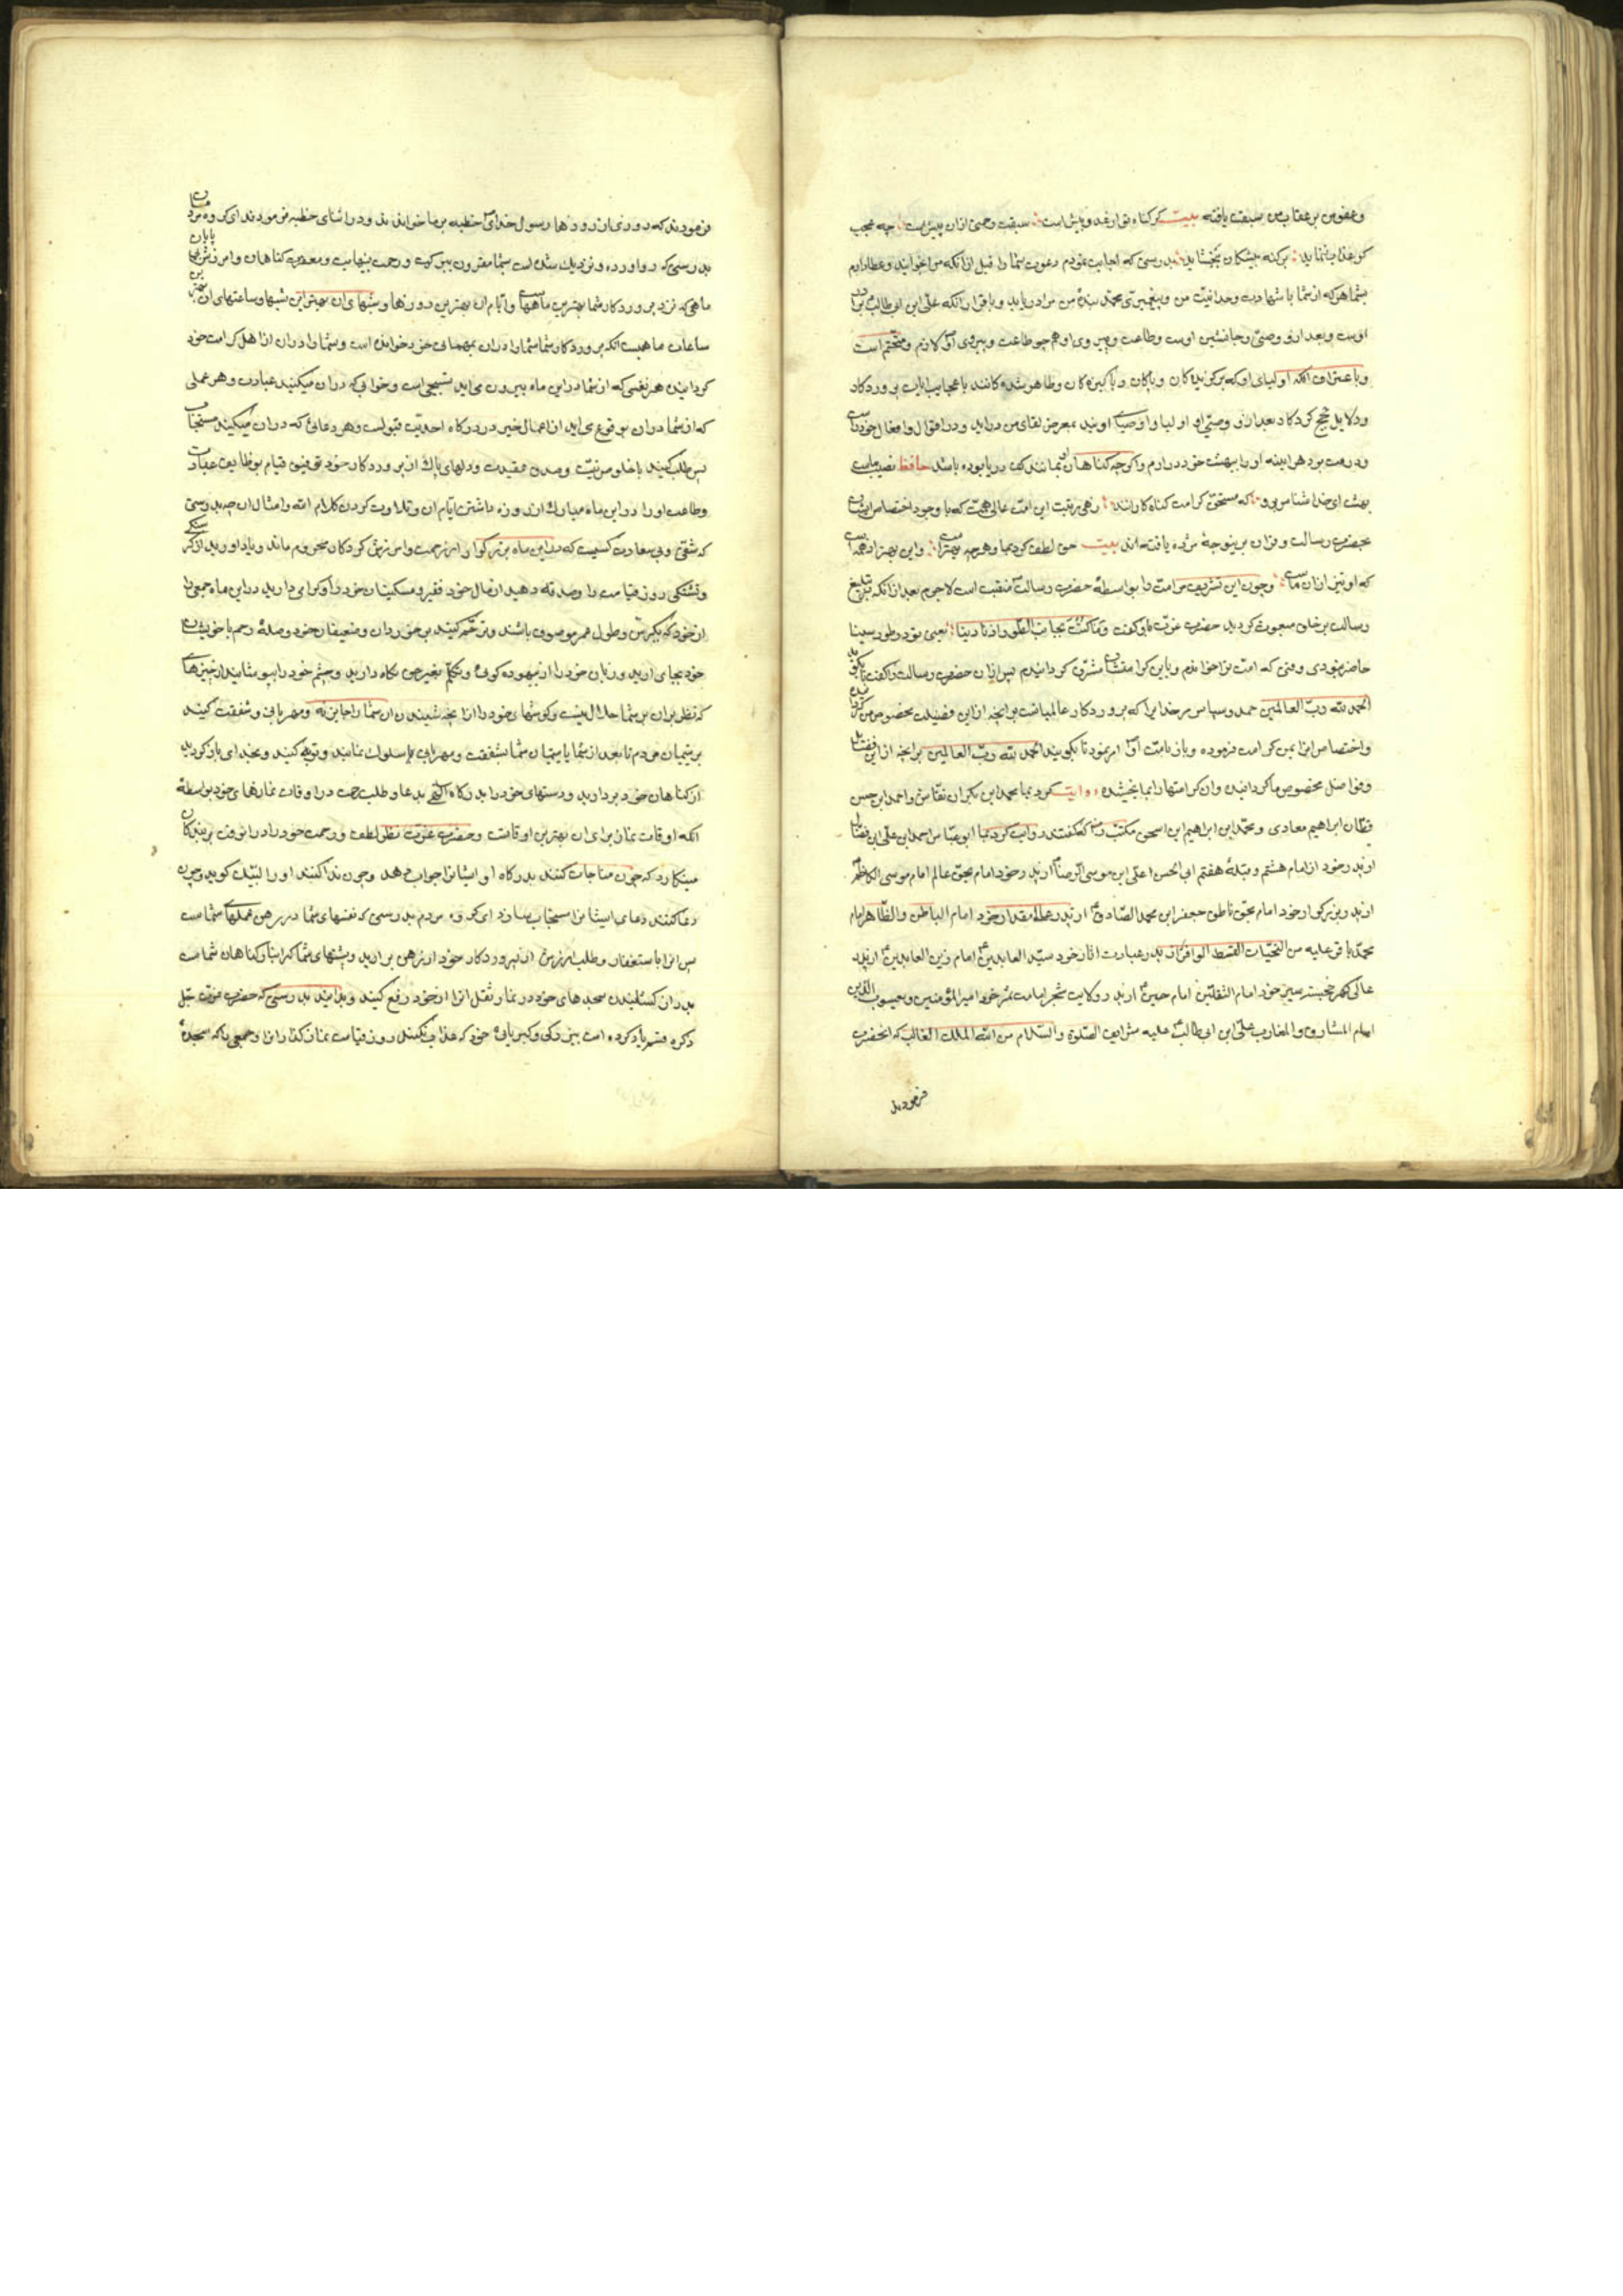 وعفو من بر عقاب من سبقت یافته بیت کر کناه تو از عدد بیش است سبقت رحمتی ازان پیش است چه عجب
کر عذاب ننماید بر کنه پیشکان بخشاید بدرستی که اجابت نمودم دعوت شما را قبل ازانکه مرا بخوانید وعطا دارم
بشما هرکه از شما با شهادت وحدانیت من و پیغمبری محمد بنده من مرا دریابد و باقرار انکه علی ابن ابی طالب برادر
اوست وبعد ازو وصی وجانشین اوست وطاعت وپیروی او همچو طاعت وپیروی او لازم ومتحتم است
وباعتراف انکه اولیای او که برکزیدکان وپاکان وپاکیزه کان وظاهر شده کانند با عجایب ایات پروردکار
ودلایل حجج کردکار بعد ازو وصی او اولیا واوصیای اویند بمعرض لقای من دراید ودر اقوال وافعال خود راست
ودرست بود هر اینه او را ببهشت خود در ارم واکرچه کناهان او بمانند کف دریا بوده باشد حافظ نصیب ماست
بهشت ای خدا شناس برو که مستحق کرامت کناه کارانند زهی رتبت این امت عالی همت که با وجود اختصاص ایشان
بحضرت رسالت وقران برینوجه مژده یافته اند بیت حق لطف کرده بما وهرچه بهتر است واین بهتر از همه است
که او نیز ازان ماست وچون این تشریف مر امت را بواسطه حضرت رسالت منقبت است لاجرم بعد ازانکه بتبلیغ
رسالت بر خلق مبعوث کردید حضرت عزت باو کفت وما کنت بجانب الطور اذ نادینا یعنی نبودی در طور سینا
حاضر نبودی وقتی که امت ترا خواندم وباین کرامتشان مشرف کردانیدم پس ازان حضرت رسالت را کفت بکو
الحمد لله رب العالمین حمد وسپاس مر خدایرا که پروردکار عالمیانست بر انچه ازاین فضیلت مخصوص من کرد
واختصاص مرا باین کرامت فرموده وباز بامت او امر نمود تا بکویند الحمد لله رب العالمین بر انچه ازاین فضایل
وفواضل مخصوص ما کردانیده وان کرامتها را بما بخشیده روایت کرد بما محمد ابن بکران نقاش واحمد ابن حسن
قطان ابراهیم معادی ومحمد ابن ابراهیم ابن اسحق مکتب که کفتند روایت کرد بما ابو عباس احمد ابن علی ابن فضال
از پدر خود از امام هشتم وقبله هفتم ابی الحسن اعلی ابن موسی الرضا از پدر خود امام بحق عالم امام موسی الکاظم
از پدر بزرکوار خود امام بحق ناطق جعفر ابن محمد الصادق از پدر خود امام الباطن والظاهر امام
محمد باقر علیه من التحیات از پدر عبادت اثار خود سید العابدین امام زین العابدین از پدر
عالی کهر خجسته سیر خود امام الثقلین امام حسین از پدر ولایت شجر امامت ثمر خود امیر المؤمنین ویعسوب الدین
امام المشارق والمغارب علی ابن ابی طالب علیه شرایف الصلوة والسلام من الله الملک الغالب که انحضرت
فرمودند
فرمودند که روزی از روزها رسول خدای خطبه بر ما خواندند ودر اثنای خطبه فرمودند ای کروه مردمان
بدرستی که رو اورده ونزدیک شده است بشما مقرون ببرکت ورحمت بینهایت ومغفرت کناهان وامرزش بی پایان
ماهی که نزد پروردکار شما بهترین ماههاست وایام ان بهترین روزها وشبهای ان بهترین شبها وساعتهای ان بهترین
ساعات ماهیست که پروردکار شما شما را دران بمهمانی خود خوانده است وشما را دران از اهل کرامت خود
کردانیده هر نفسی که از شما دراین ماه بیرون می اید تسبیحی است وخوابی که دران میکنید عبادت وهر عملی
که از شما دران بوقوع می اید از اعمال خیر در درکاه احدیت قبولست وهر دعائی که دران میکنید مستجاب
پس طلب کنید باخلوص نیت وصدق عقیدت ودلهای پاک از پروردکار خود توفیق قیام بوظایف عبادت
وطاعت او را دراین ماه مبارک از روزه داشتن ایام ان وتلاوت کردن کلام الله وامثال ان چه بدرستی
که شقی وبی سعادت کسیست که دراین ماه بزرکوار از رحمت وامرزش کردکار محروم ماند ویاد اورید از کرسنکی
وتشنکی روز قیامت را وصدقه دهید از مال خود فقیر ومسکینان خود را وکرامی دارید دراین ماه جمعی را
از خود که بکبر سن وطول عمر موصوف باشند وترحم کنید بر خوردان وضعیفان خود وصله رحم با خویشان
خود بجای ارید وزبان خود را از بیهوده کوئی وتکلم بغیر حق نکاه دارید وچشم خود را بپوشانید از چیزهائی
که نظر بران بر شما حلال نیست وکوشهای خود را از انچه شنیدن ان شما را جایز نه ومهربانی وشفقت کنید
بر یتیمان مردم تا بعد از شما با یتیمان شما بشفقت ومهربانی سلوک نمایند وتوبه کنید وبخدای باز کردید
از کناهان خود بردارید ودستهای خود را بدرکاه الهی بدعا وطلب رحمت در اوقات نمازهای خود بواسطه
انکه اوقات نماز برای ان بهترین اوقاتست وحضرت عزت نظر لطف ورحمت خود را دران وقت بر بندکان
میکمارد که چون مناجات کنند بدرکاه او ایشانرا جواب دهد وچون ندا کنند او را لبیک کوید وچون
دعا کنند دعای ایشانرا مستجاب سازد ای کروه مردم بدرستی که نفسهای شما در رهن عملهای شماست
پس انرا باستغفار وطلب امرزش از پروردکار خود از رهن برارید وپشتهای شما کرانبار کناهان شماست
بدرازکشانیدن سجدهای خود در نماز ثقل انرا از خود رفع کنید وبدانید بدرستی که حضرت عزت جل
ذکره قسم یاد کرده است ببزرکی وکبریائی خود که عذاب نکند روز قیامت نماز کذارانرا وجمعی را که سجده